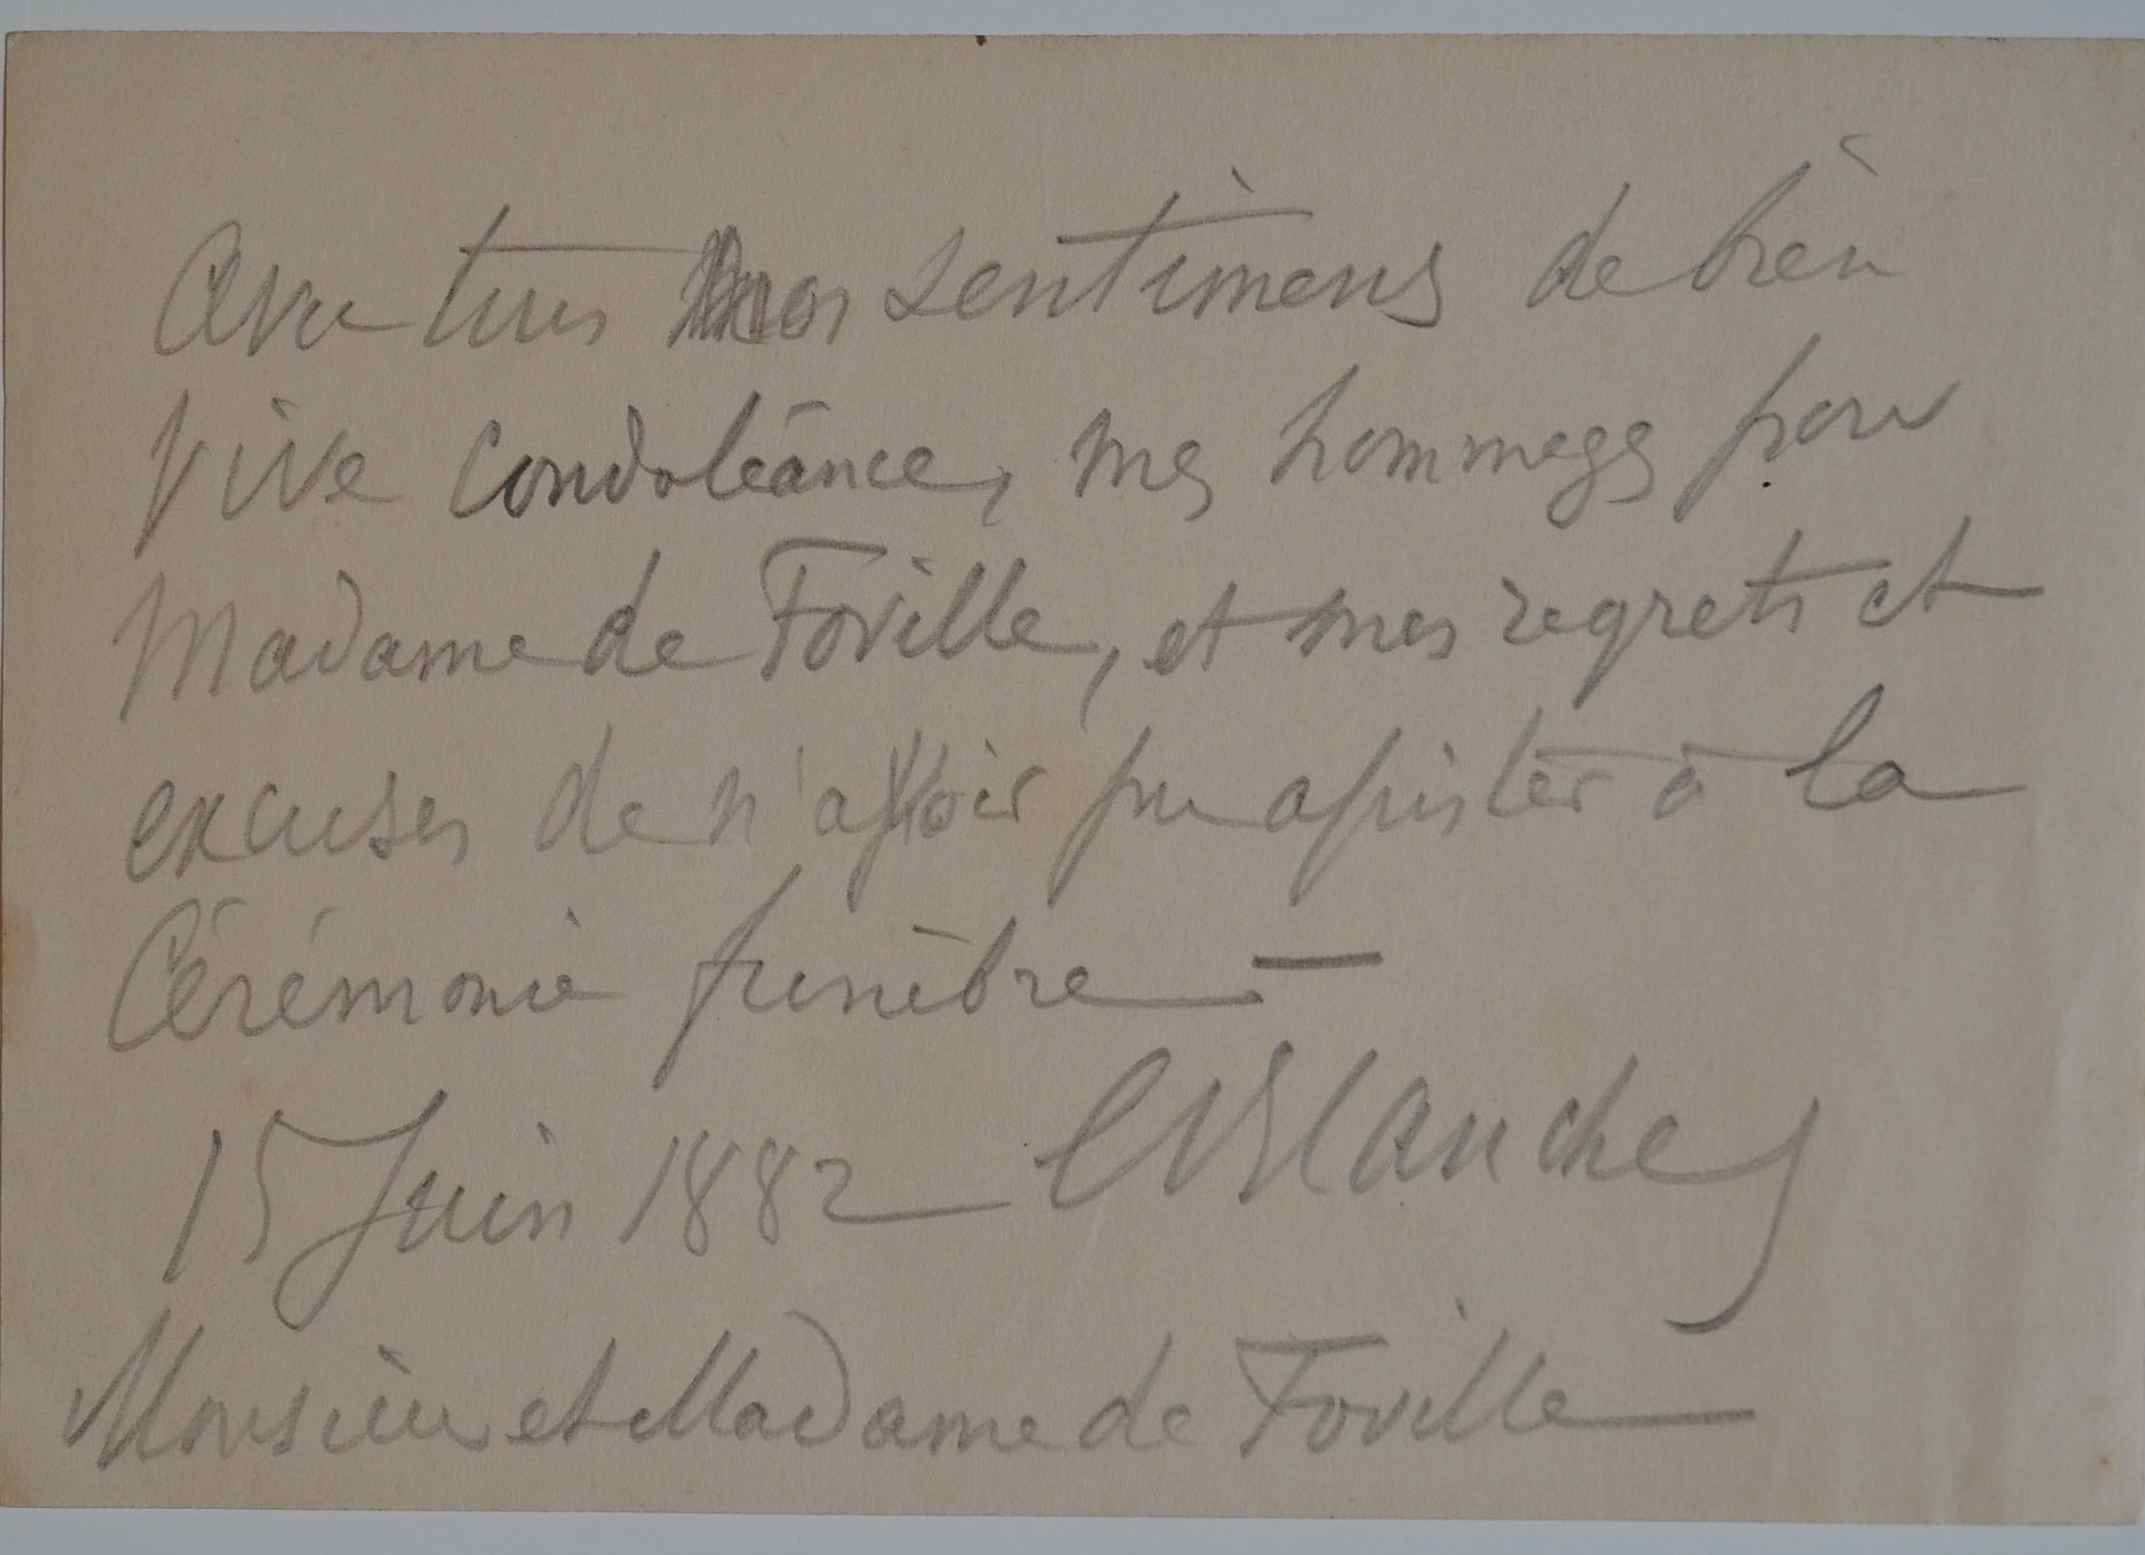 Avec tous mos sentimens de bien
vive condoléance, mes hommages pour
Madame de Foville, et mes regrets et
excuses de n'avoir pu assister à la
Cérémonie funèbre —
15 Juin 1882 EBlanche
Monsieur et Madame de Foville